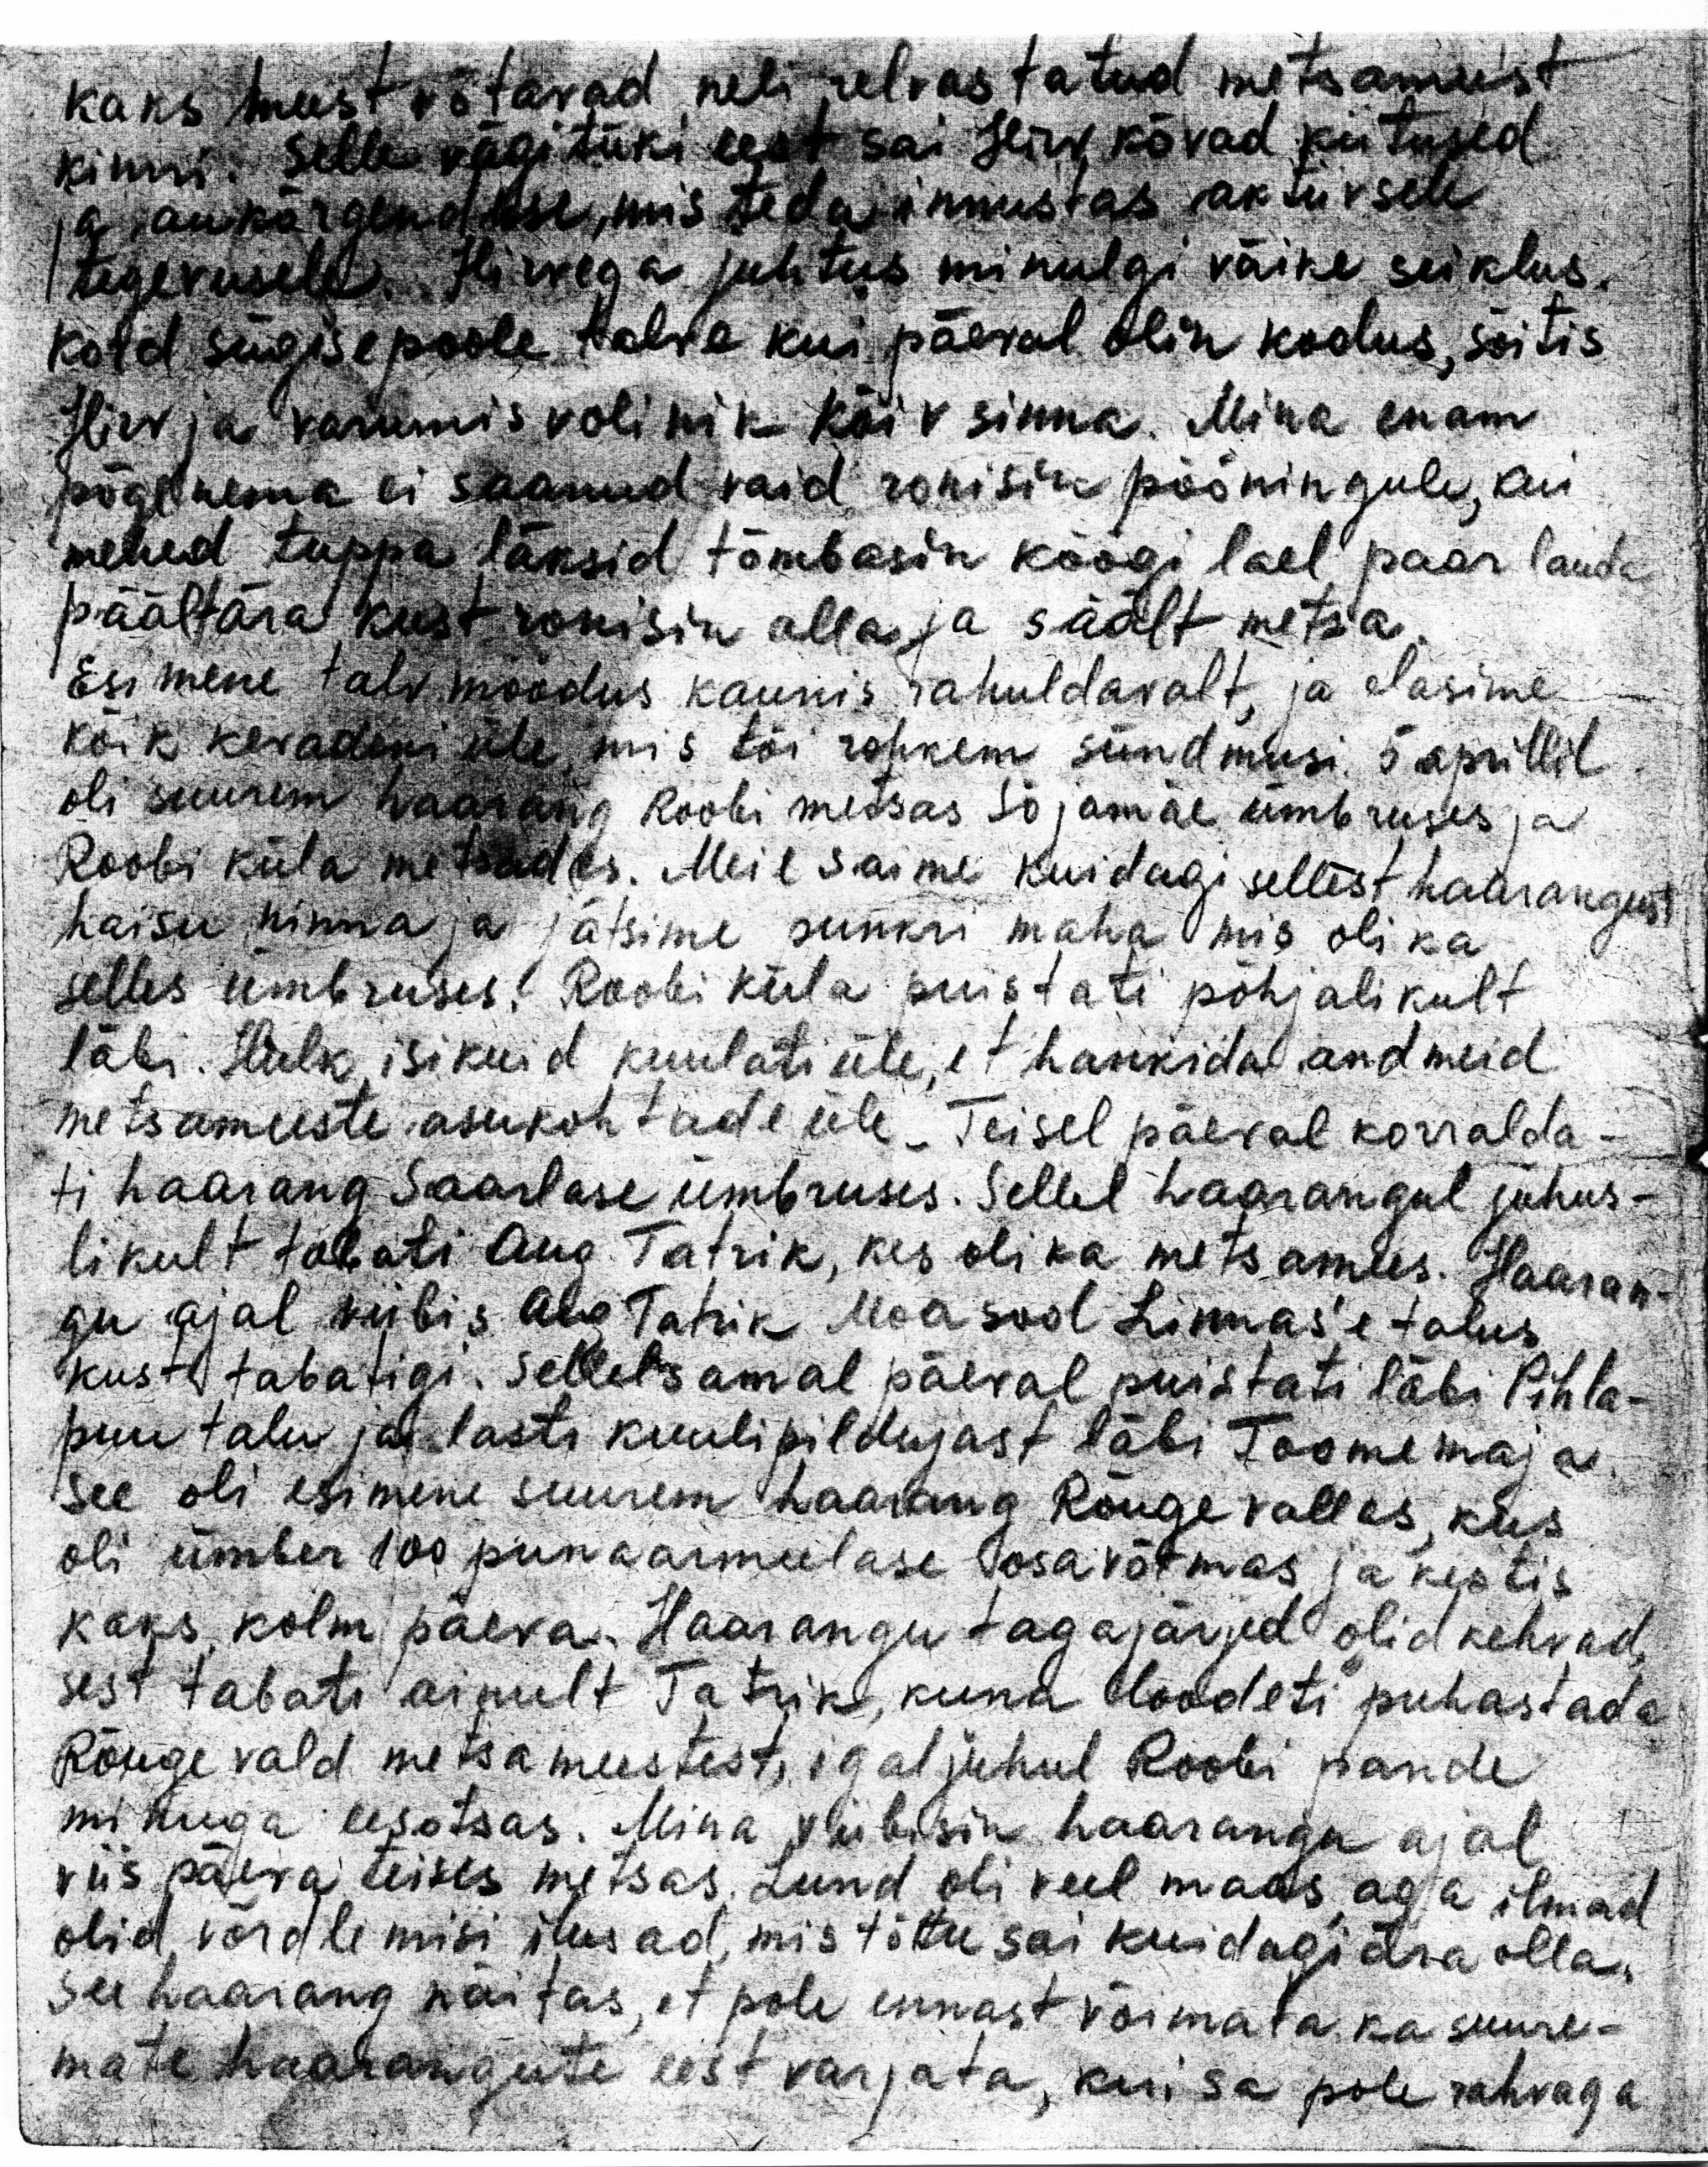 kaks meest võtavad neli relvastatud metsameest
kinni. Selle vägitüki eest sai Hirv kõvad kiitused
ja aukõrgendise, mis teda innustas aktiivsele
tegevusele. Hirvega juhtus minulgi väike seiklus.
sügisepoole talve kui päeval olin kodus, sõitis
Hirv ja varumisvolinik Kõiv sinna. Mina enam
põgenema ei saanud vaid ronisin pööningule, kui
mehed tuppa läksid tõmbasin köögi lael paar lauda
päält ära kust ronisin alla ja säält metsa.
Esimene talv möödus kaunis rahuldavalt, ja elasime
kõik kevadeni üle, mis tõi rohkem sündmusi. 5 aprillil
oli suurem haarang Roobi metsas Sõjamäe ümbruses ja
Roobi küla metsades. Meie saime kuidagi sellest haarangust
haisu ninna ja jätsime punkri maha mis oli ka
selles ümbruses. Roobi küla puistati põhjalikult
läbi. Hulk isikuid kuulati üle, et hankida andmeid
metsameeste asukohtade üle. Teisel päeval korralda-
ti haarang Saarlase ümbruses. Sellel haarangul juhus-
likult tabati Aug. Tatrik, kes oli ka metsamees. Haaran-
gu ajal viibis Aug Tatrik Moasool Linnas'e talus
kust tabatigi. Sellelsamal päeval puistati läbi Pihla-
puu talu ja lasti kuulipildujast läbi Toomemaja.
See oli esimene suurem haarang Rõuge vallas, kus
oli ümber 100 punaarmeelase osavõtmas ja kestis
kaks, kolm päeva. Haarangu tagajärjed olid kehvad,
sest tabati ainult Tatrik, kuna loodeti puhastada
Rõuge vald metsameestest, igaljuhul Roobi pande
minuga eesotsas. Mina viibisin haarangu ajal
viis päeva teises metsas. Lund oli veel maas, aga ilmad
olid võrdlemisi ilusad, mistõttu sai kuidagi ära olla.
See haarang näitas, et pole ennast võimata ka suure-
mate haarangute eest varjata, kui sa pole rahvaga